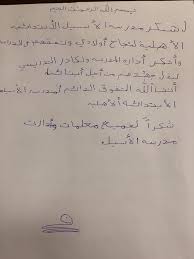 بسم الله الرحمن الرحيم
أشكر مدرسة الأسيل الابتدائية
الأهلية لنجاح أولادي وتفوقهم
وأشكر إدارة المدرسة والكادر التدريسي
من أجل أبنائنا
الله التفوق الدائم لمدرسة الأسيل
الابتدائية الأهلية
شكراً لجميع معلمات وإدارة
مدرسة الأسيل